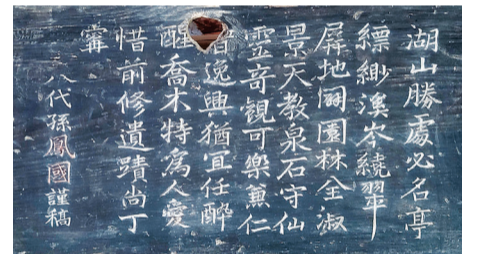 湖山勝處必名亭
縹緲溪岑繞翠
屛地闢園林全淑
景天教泉石守仙
靈竒觀可樂兼仁
逸興猶宜任醉
醒喬木特爲人愛
惜前修遺蹟尚丁
寗
八代孫鳳國謹稿